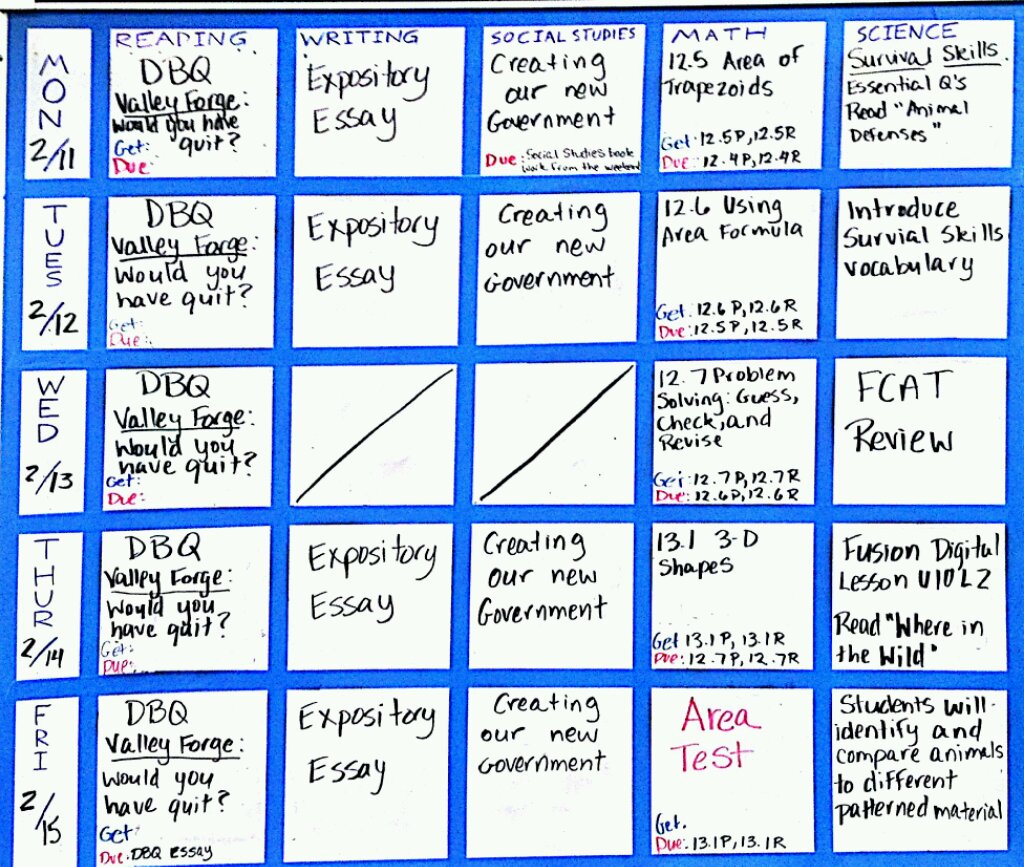 READING
WRITING
SOCIAL STUDIES
MATH
SCIENCE
MON
2/11
DBQ
Valley Forge:
Would you have
quit?
Get:
Due:
Expository
Essay
Creating
our new
Government
Due: Social Studies book
work from the weekend
12.5 Area of
Trapezoids
Get: 12.5P, 12.5R
Due: 12.4P, 12.4R
Survival Skills.
Essential Q's
Read "Animal
Defenses"
TUES
2/12
DBQ
Valley Forge:
Would you
have quit?
Get:
Due:
Expository
Essay
Creating
our new
Government
12.6 Using
Area Formula
Get: 12.6P, 12.6R
Due: 12.5P, 12.5R
Introduce
Survial Skills
vocabulary
WED
2/13
DBQ
Valley Forge:
Would you
have quit?
Get:
Due:
12.7 Problem
Solving: Guess,
Check, and
Revise
Get: 12.7P, 12.7R
Due: 12.6P, 12.6R
FCAT
Review
THUR
2/14
DBQ
Valley Forge:
Would you
have quit?
Get:
Due:
Expository
Essay
Creating
our new
Government
13.1 3-D
Shapes
Get 13.1P, 13.1R
Due: 12.7P, 12.7R
Fusion Digital
Lesson U10L2
Read "Where in
the Wild"
FRI
2/15
DBQ
Valley Forge:
Would you
have quit?
Get:
Due: DBQ Essay
Expository
Essay
Creating
our new
Government
Area
Test
Get.
Due: 13.1P, 13.1R
Students will
identify and
compare animals
to different
patterned material